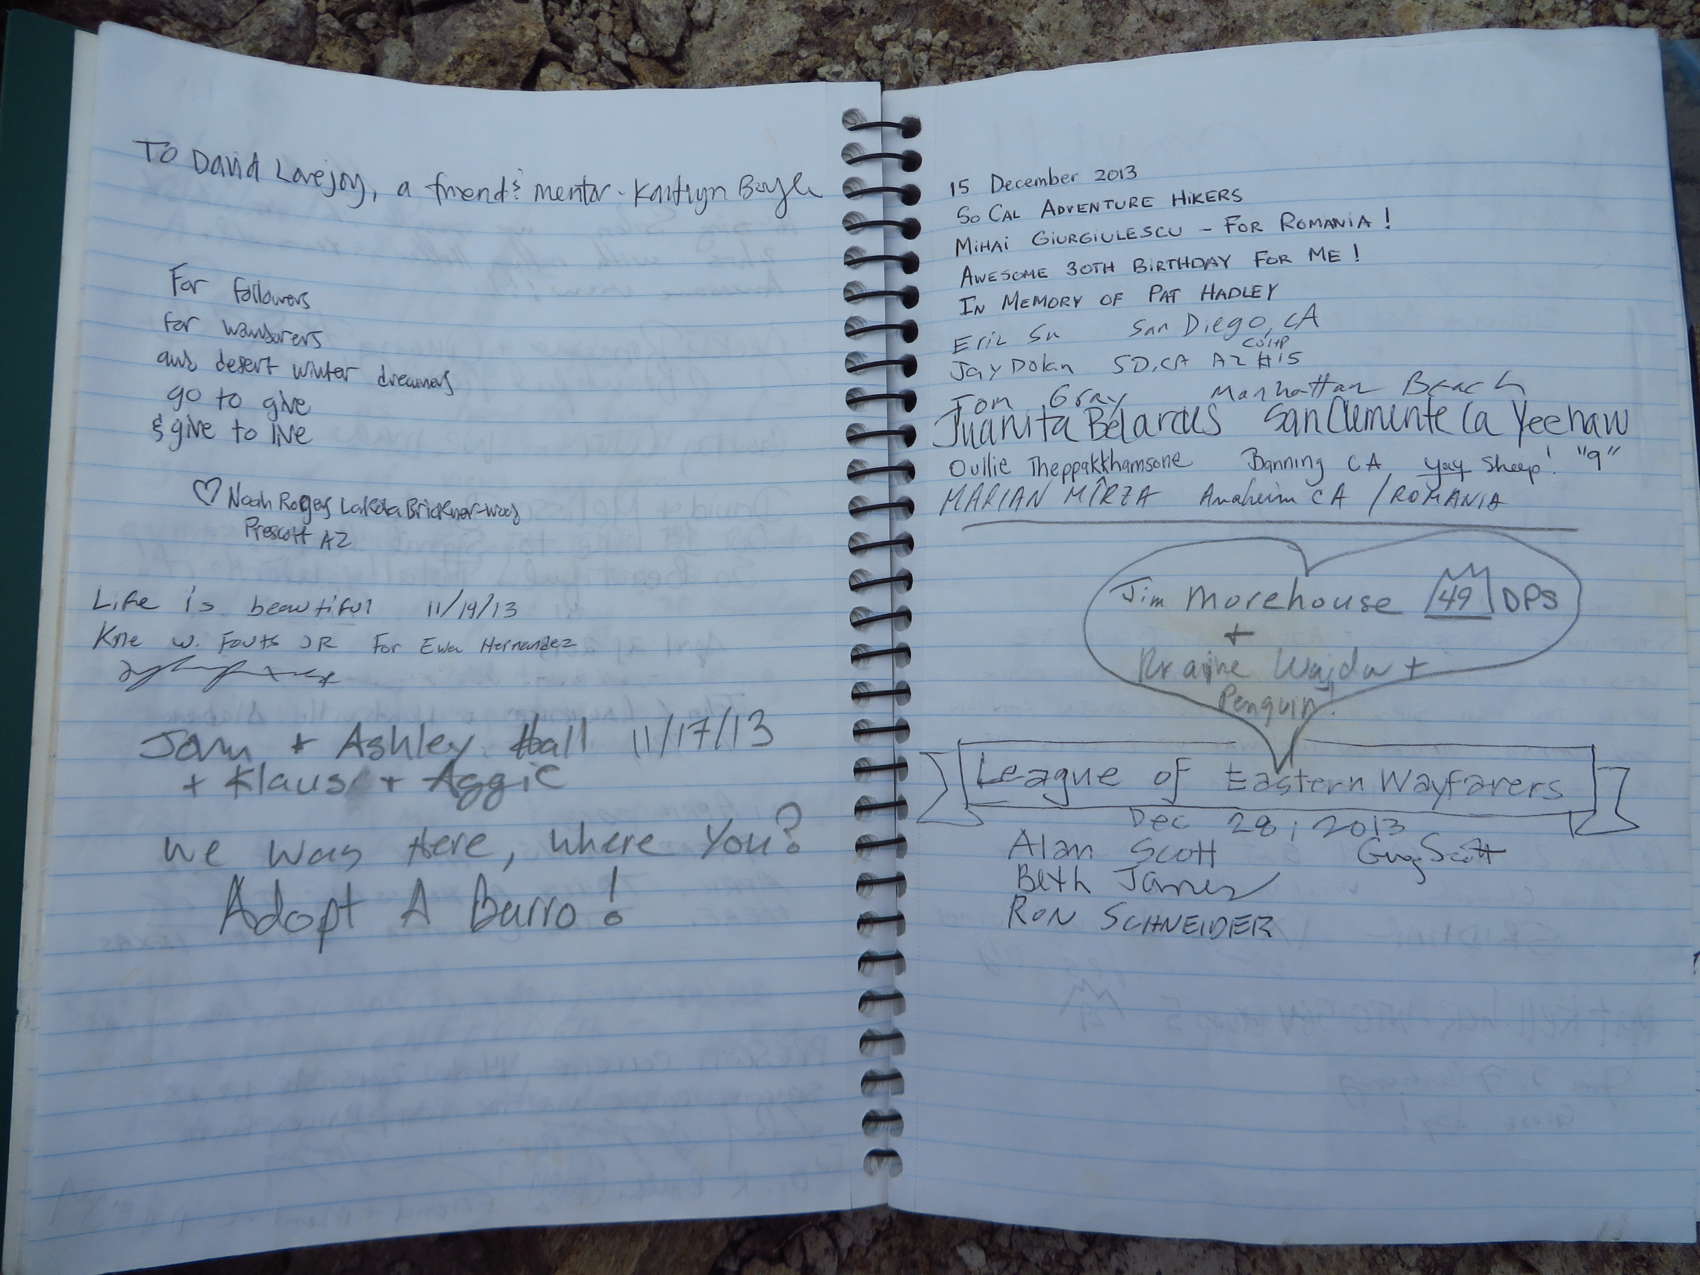 To David Lovejoy, a friend & mentor - Kaitlyn Boyle
For followers
for wanderers
and desert winter dreamers
go to give
& give to live
♡ Noah Rogers Lakota Brickner-Wood
Prescott AZ
Life is beautiful 11/19/13
W. Fouts JR For Ewa Hernandez
+ Ashley Hall 11/17/13
+ Klaus + Aggie
We Was Here, Where You?
Adopt A Burro!
15 December 2013
So Cal Adventure Hikers
Mihai Giurgiulescu - For Romania!
Awesome 30th Birthday For Me!
In Memory of Pat Hadley
Eric Su San Diego, CA
Jay Dolan SD, CA AZ COHP #15
Tom Gray Manhattan Beach
Juanita Belarcus San Clemente Ca Yeehaw
Oullie Theppakkhamsone Banning CA, yay sheep! "9"
MARIAN MÎRZA Anaheim CA / ROMANIA
Jim Morehouse 49 DPS
+
Wajda +
Penguin!
League of Eastern Wayfarers
Dec 28, 2013
Alan Scott Guy Scott
Beth James
Ron SCHNEIDER